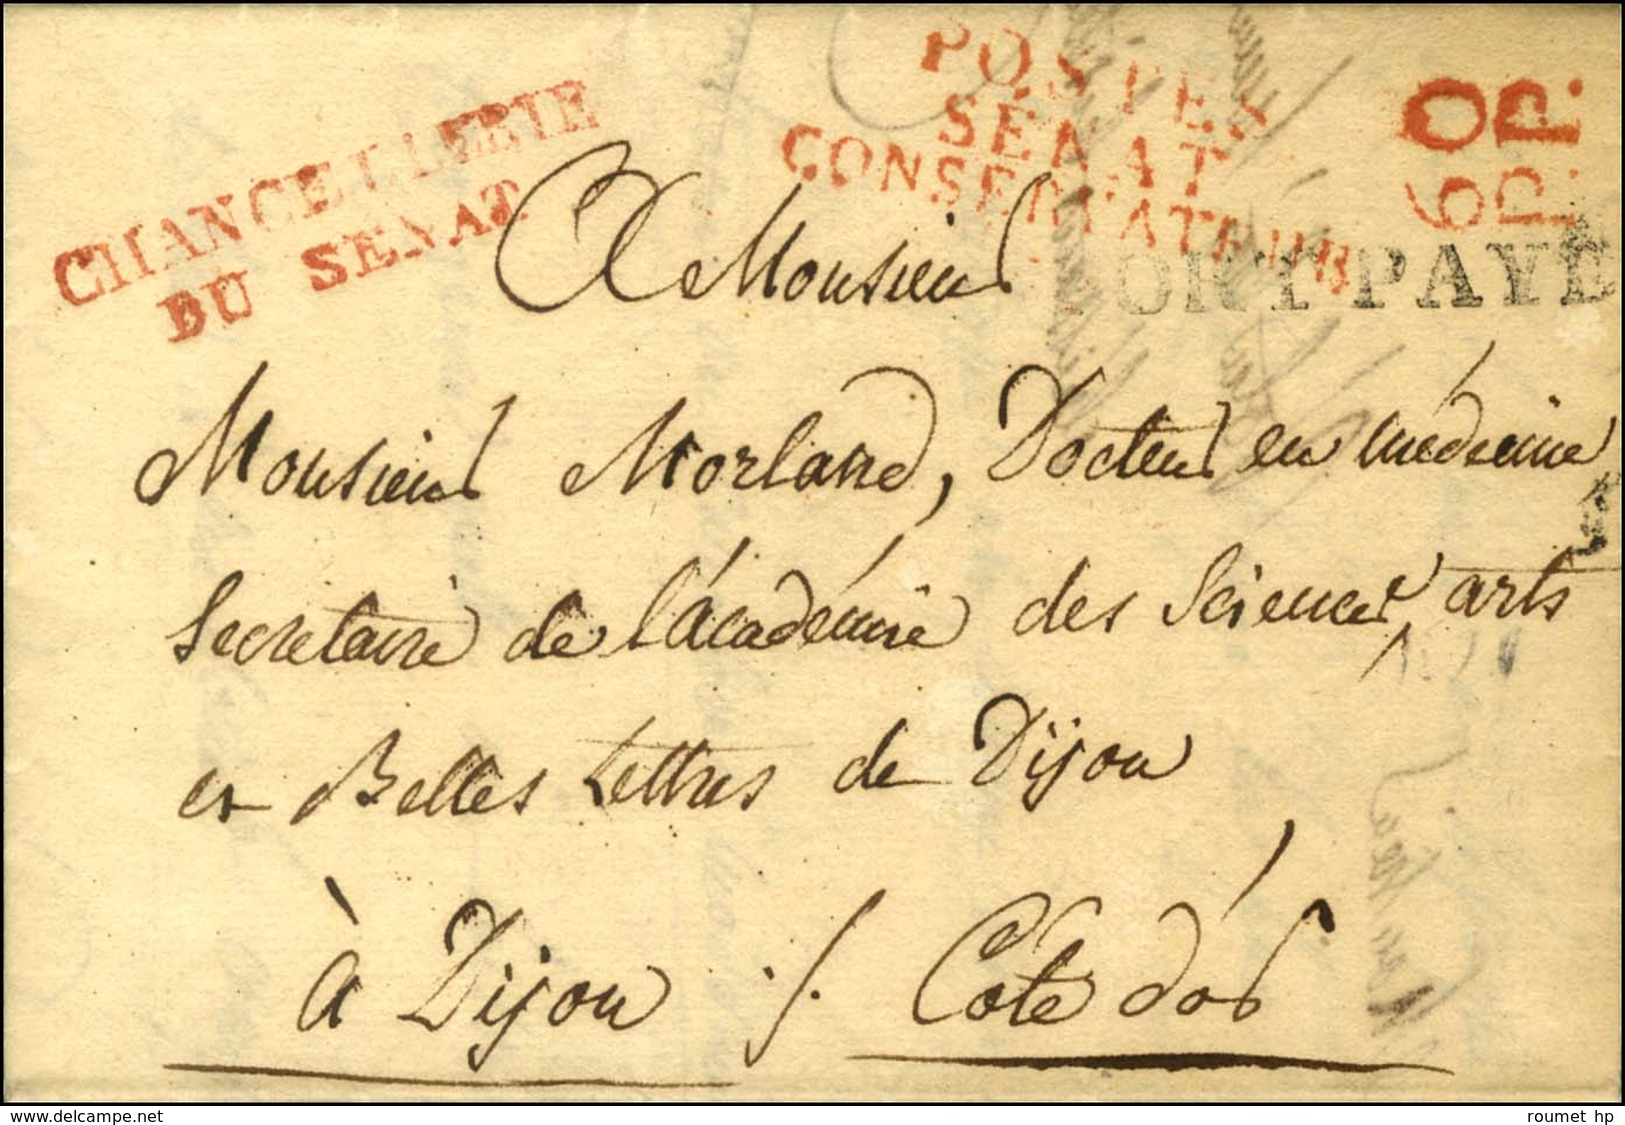 CHANCELLERIE
DU SENAT
POSTES
SÉNAT
CONSERVATEUR
P.60.P.
PORT PAYÉ
A Monsieur
Monsieur Morland, Docteur en médecine
Secretaire de l'académie des Sciences, arts
et Belles Lettres de Dijon
à Dijon /. Côte d'or
roumet hp